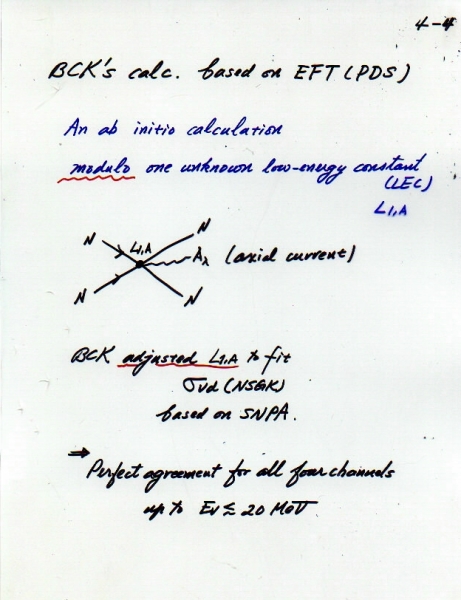 4-4
BCK's calc. based on EFT (PDS)
An ab initio calculation
modulo one unknown low-energy constant
(LEC)
L1,A
N L1,A N
Aλ (axial current)
N N
BCK adjusted L1,A to fit
σνd (NSGK)
based on SNPA.
⇒ Perfect agreement for all four channels
up to Eν ≲ 20 MeV